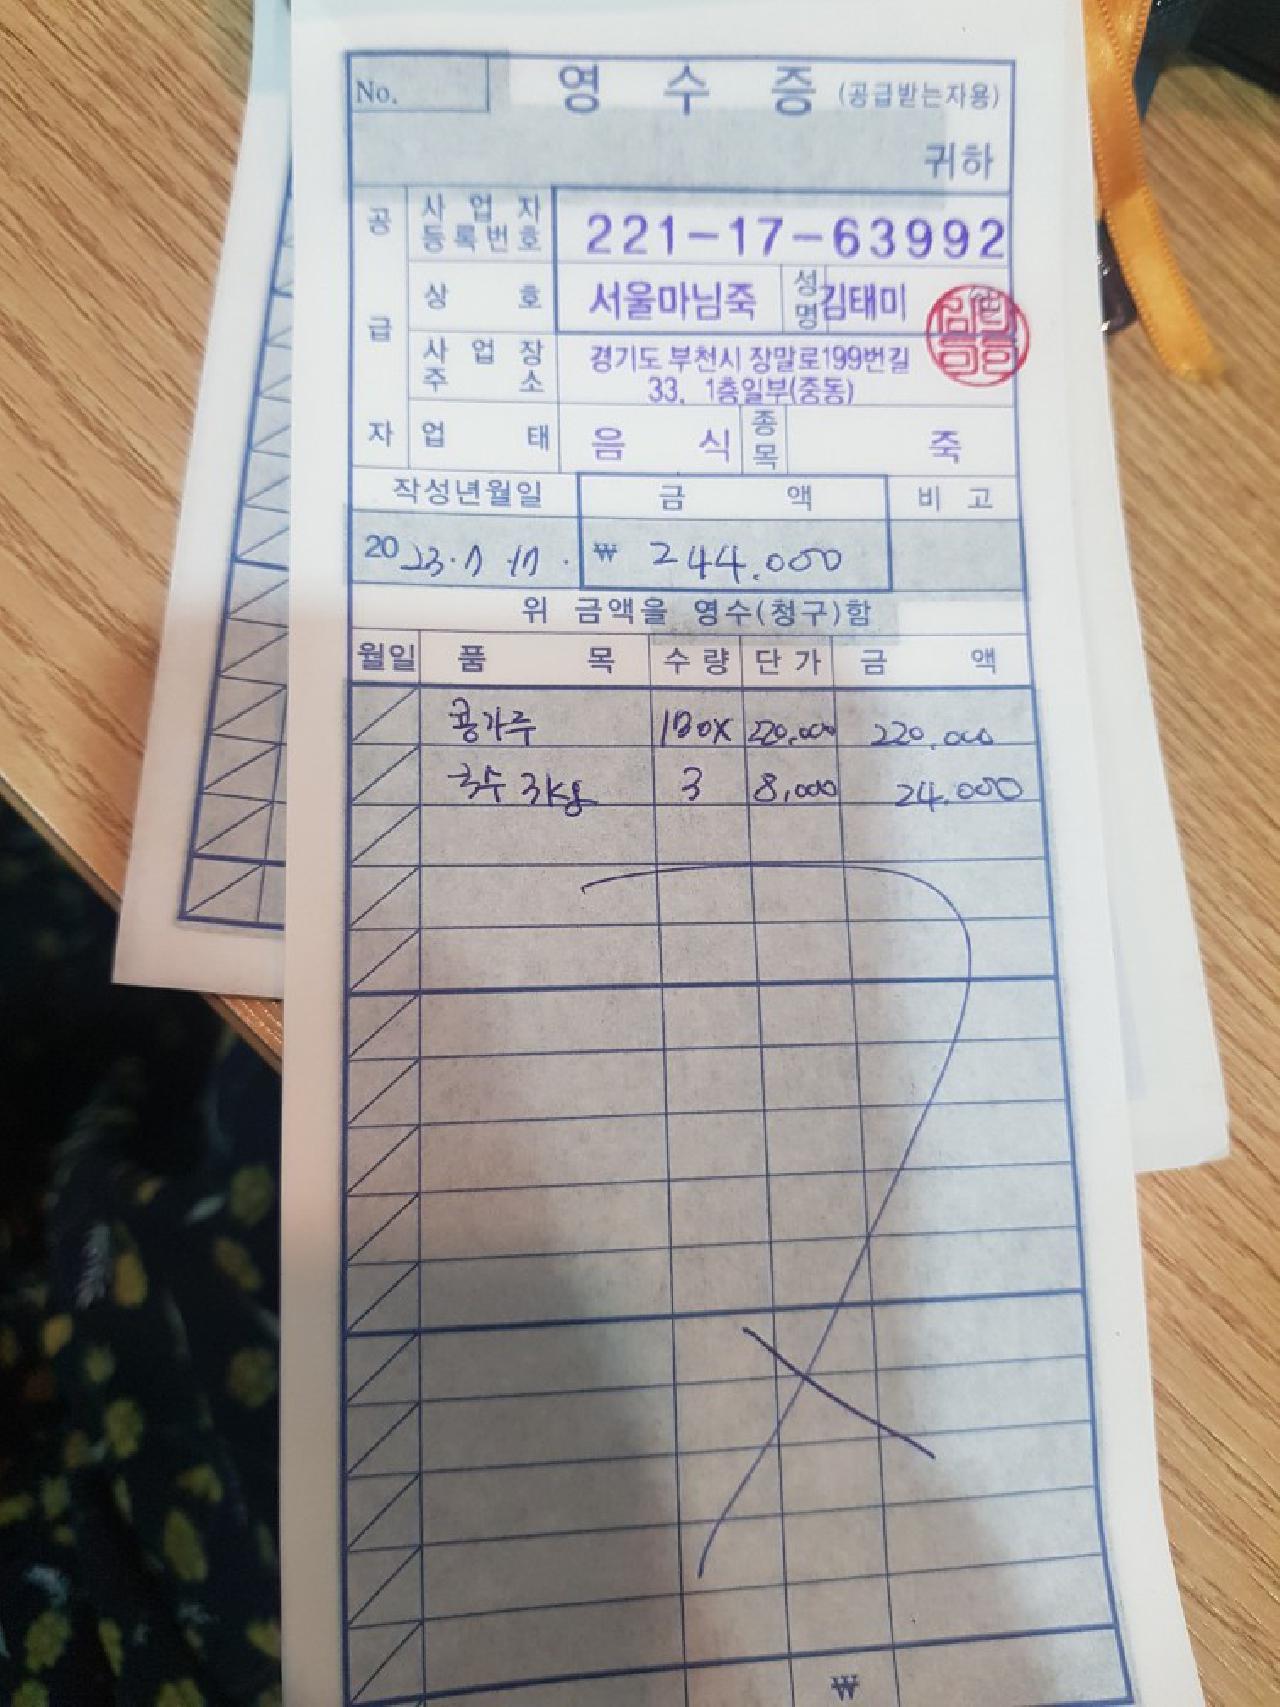 No. 영 수 증 (공급받는자용)
귀하
공급자
사업자등록번호 221-17-63992
상 호 서울마님죽 성명 김태미
사업장주소 경기도 부천시 장말로199번길
33, 1층일부(중동)
업 태 음 식 종목 죽
작성년월일 금 액 비 고
2023.7.17. ₩ 244.000
위 금액을 영수(청구)함
월일 품 목 수 량 단 가 금 액
콩가루 1BOX 220,000 220,000
국수 3kg 3 8,000 24.000
₩